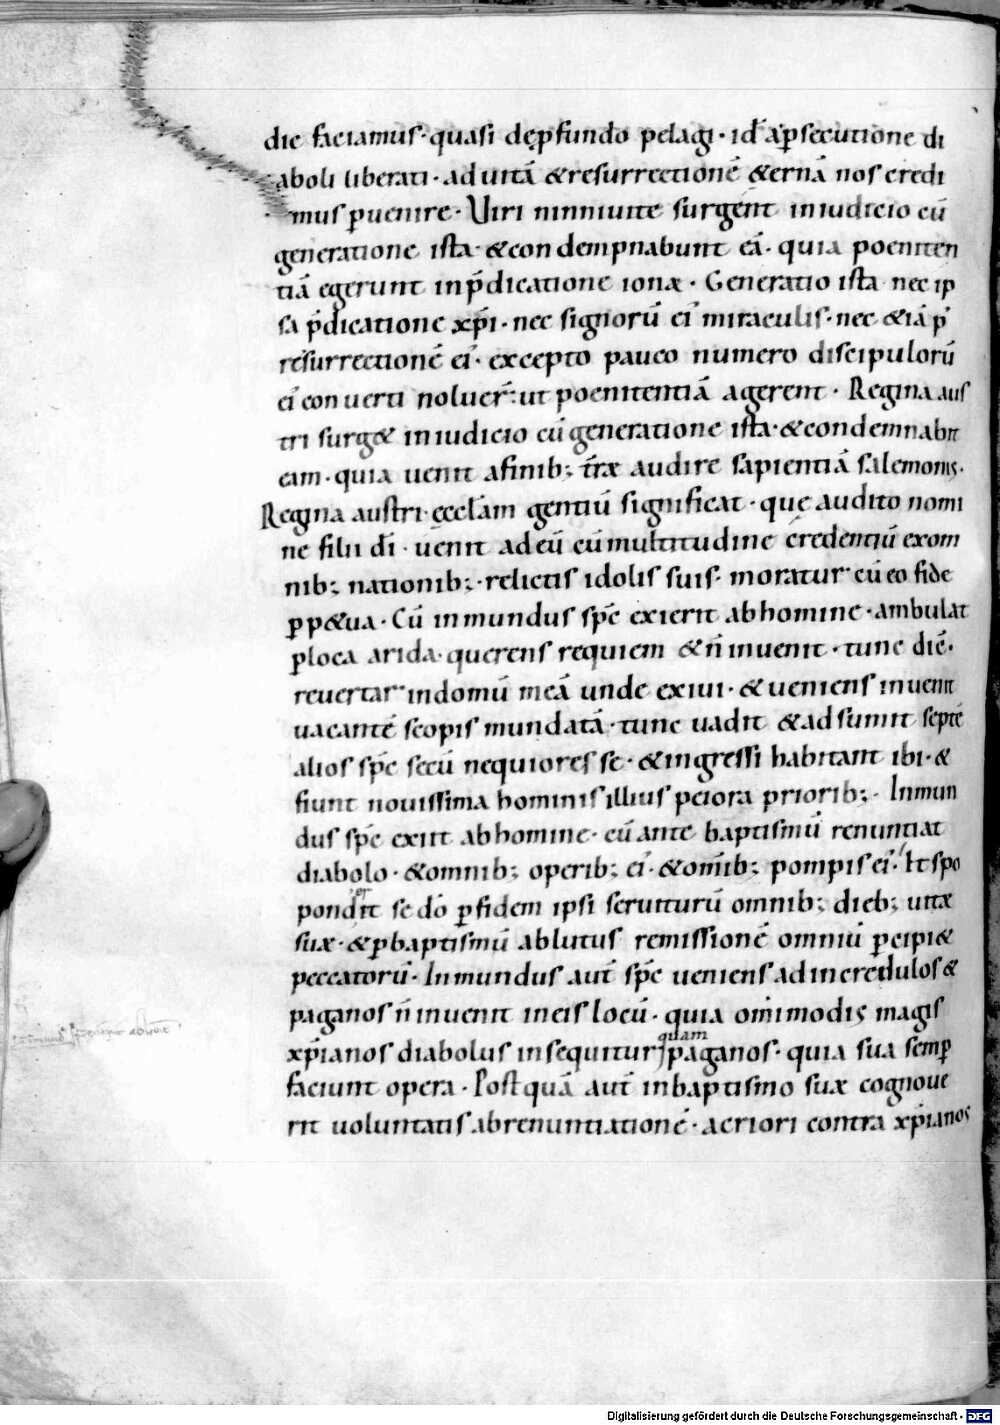 die faciamus· quasi dep̱fundo pelagi· id̄ ap̱secutione di
aboli liberati· ad uitā &resurrectionē &ernā nos credi
mus p̱uenire· Uiri nınniuite surgent iniudicio cū
generatione ista· &condempnabunt eā· quia poeniten
tiā egerunt inp̄dicatione ionæ· Generatio ista nec ip
sa p̄dicatione xp̄i· nec signorū ei᾽ miraculis· nec &iā p᾽
resurrectionē ei᾽· excepto pauco numero discipulorū
ei᾽ conuerti noluer̄· ut poenitentiā agerent· Regina aus
tri surg& iniudicio cū generatione ista· &condemnabit
eam· quia uenit afinib; t̄ræ audire sapientiā salemonis·
Regina austri ęccl̄am gentiū significat· quę audito nomi
ne filii dī· uenit adeū cū multitudine credentiū exom
nib; nationib;· relictis idolis suis· moratur cū eo fide
p̱p&ua· Cū inmundus sp̄c exierit abhomine· ambulat
p̱loca arida· querens requiem &n̄ inuenit· tunc diē·
reuertar indomū meā unde exiui· & ueniens inuenit
uacantē scopis mundatā· tunc uadit &adsumit septē
alios sp̄c secū nequiores se· &ingressi habitant ibi· &
fiunt nouissima hominis illius peiora priorib;· Inmun
dus sp̄c exiit abhomine· cū ante baptismū renuntiat
diabolo· &omnib; operib; ei᾽ &om̄ib; pompis ei᾽· Et spo
ponderit se dō p̱fidem ipsi seruiturū omnib; dieb; uitæ
suæ· &p̱baptismū ablutus remissionē omniū p̱cipi&
peccatorū· Inmundus aut̄ sp̄c ueniens ad incredulos &
paganos n̄ inuenit ineis locū· quia om̄imodis magis
xp̄ianos diabolus insequitur quam paganos· quia sua semp̱
faciunt opera· Postquā aut̄ inbaptismo suæ cognoue
rit uoluntatis abrenuntiationē· acriori contra xp̄ianos
Digitalisierung gefördert durch die Deutsche Forschungsgemeinschaft - DFG